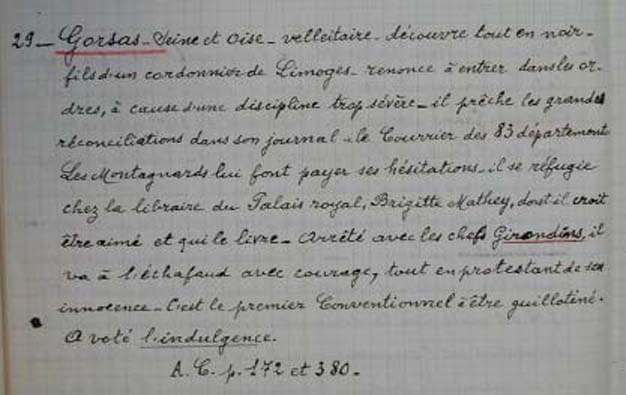 29_ Gorsas_Seine et Oise_ velleitaire_ découvre tout en noir_
fils d'un cordonnier de Limoges_ renonce à entrer dans les or-
dres, à cause d'une discipline trop sévère_ il prêche les grandes
réconciliations dans son journal _le Courrier des 83 département
Les Montagnards lui font payer ses hésitations_ il se réfugie
chez la libraire du Palais royal, Brigitte Mathey, dont il croit
être aimé et qui le livre_ Arrêté avec les chefs Girondins, il
va à l'échafaud avec courage, tout en protestant de son
innocence_ C'est le premier Conventionnel à être guillotiné.
A voté l'indulgence.
A. C. p. 172 et 380_